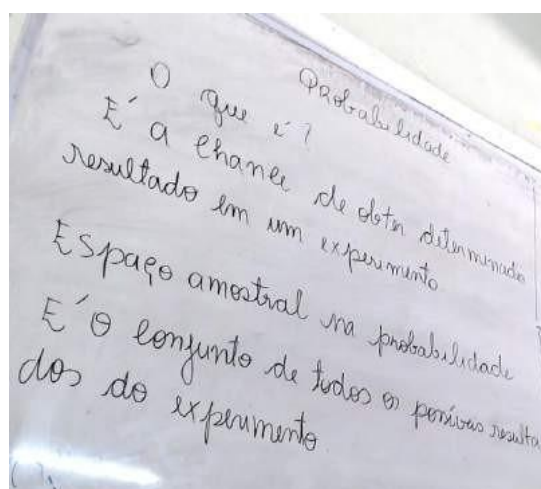 Probabilidade
O que é?
É a chance de obter determinado
resultado em um experimento
Espaço amostral na probabilidade
É o conjunto de todos os possíveis resulta
dos do experimento